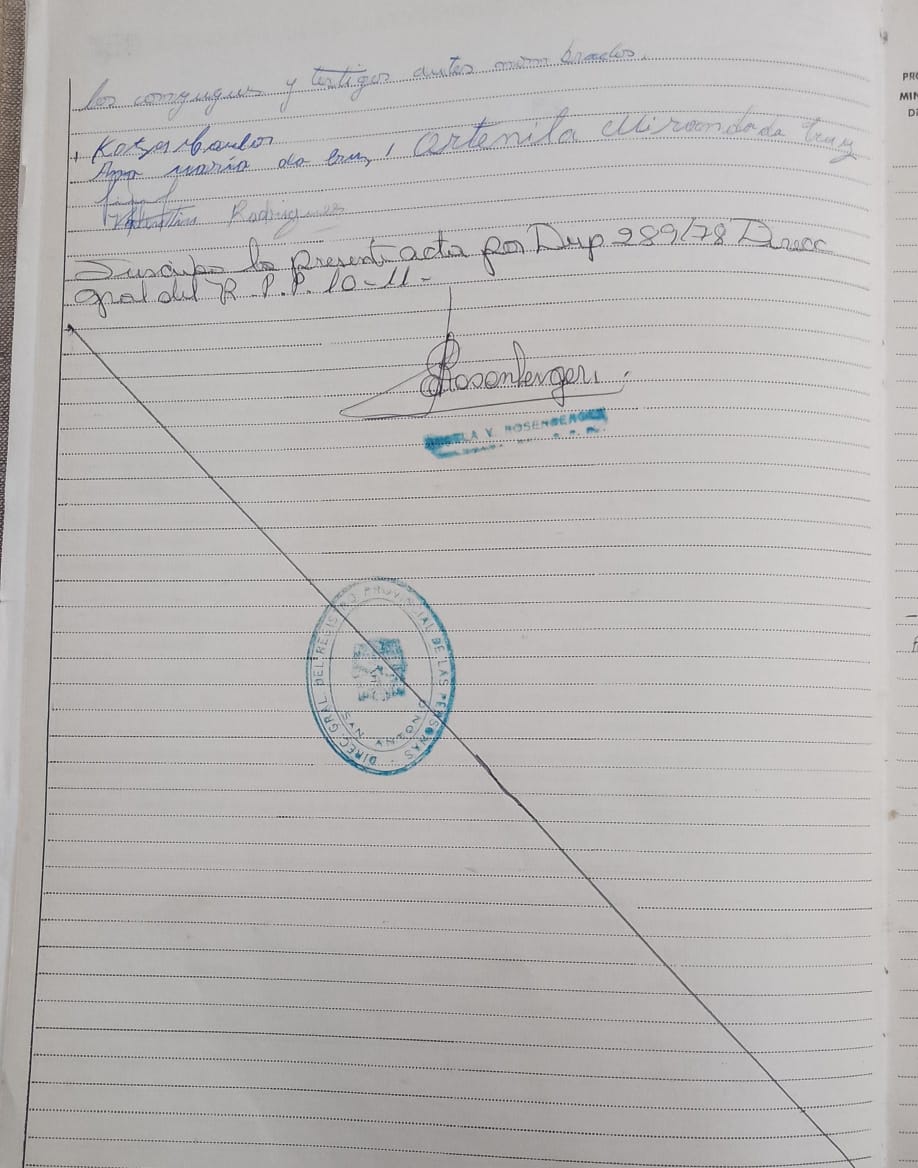 los conyugues y testigos antes nombrados.
Ana maria da cruz, Artenila Miranda da Cruz
Valentin Rodrigues
Suscribo la presente acta por Disp 289/78 Direcc
Gral del R. P. P. 10-11-
Rosenberger
LA V. ROSENBERGER
DIREC. GRAL DEL REGISTRO PROVINCIAL DE LAS PERSONAS
SAN ANTONIO
PRO
MIN